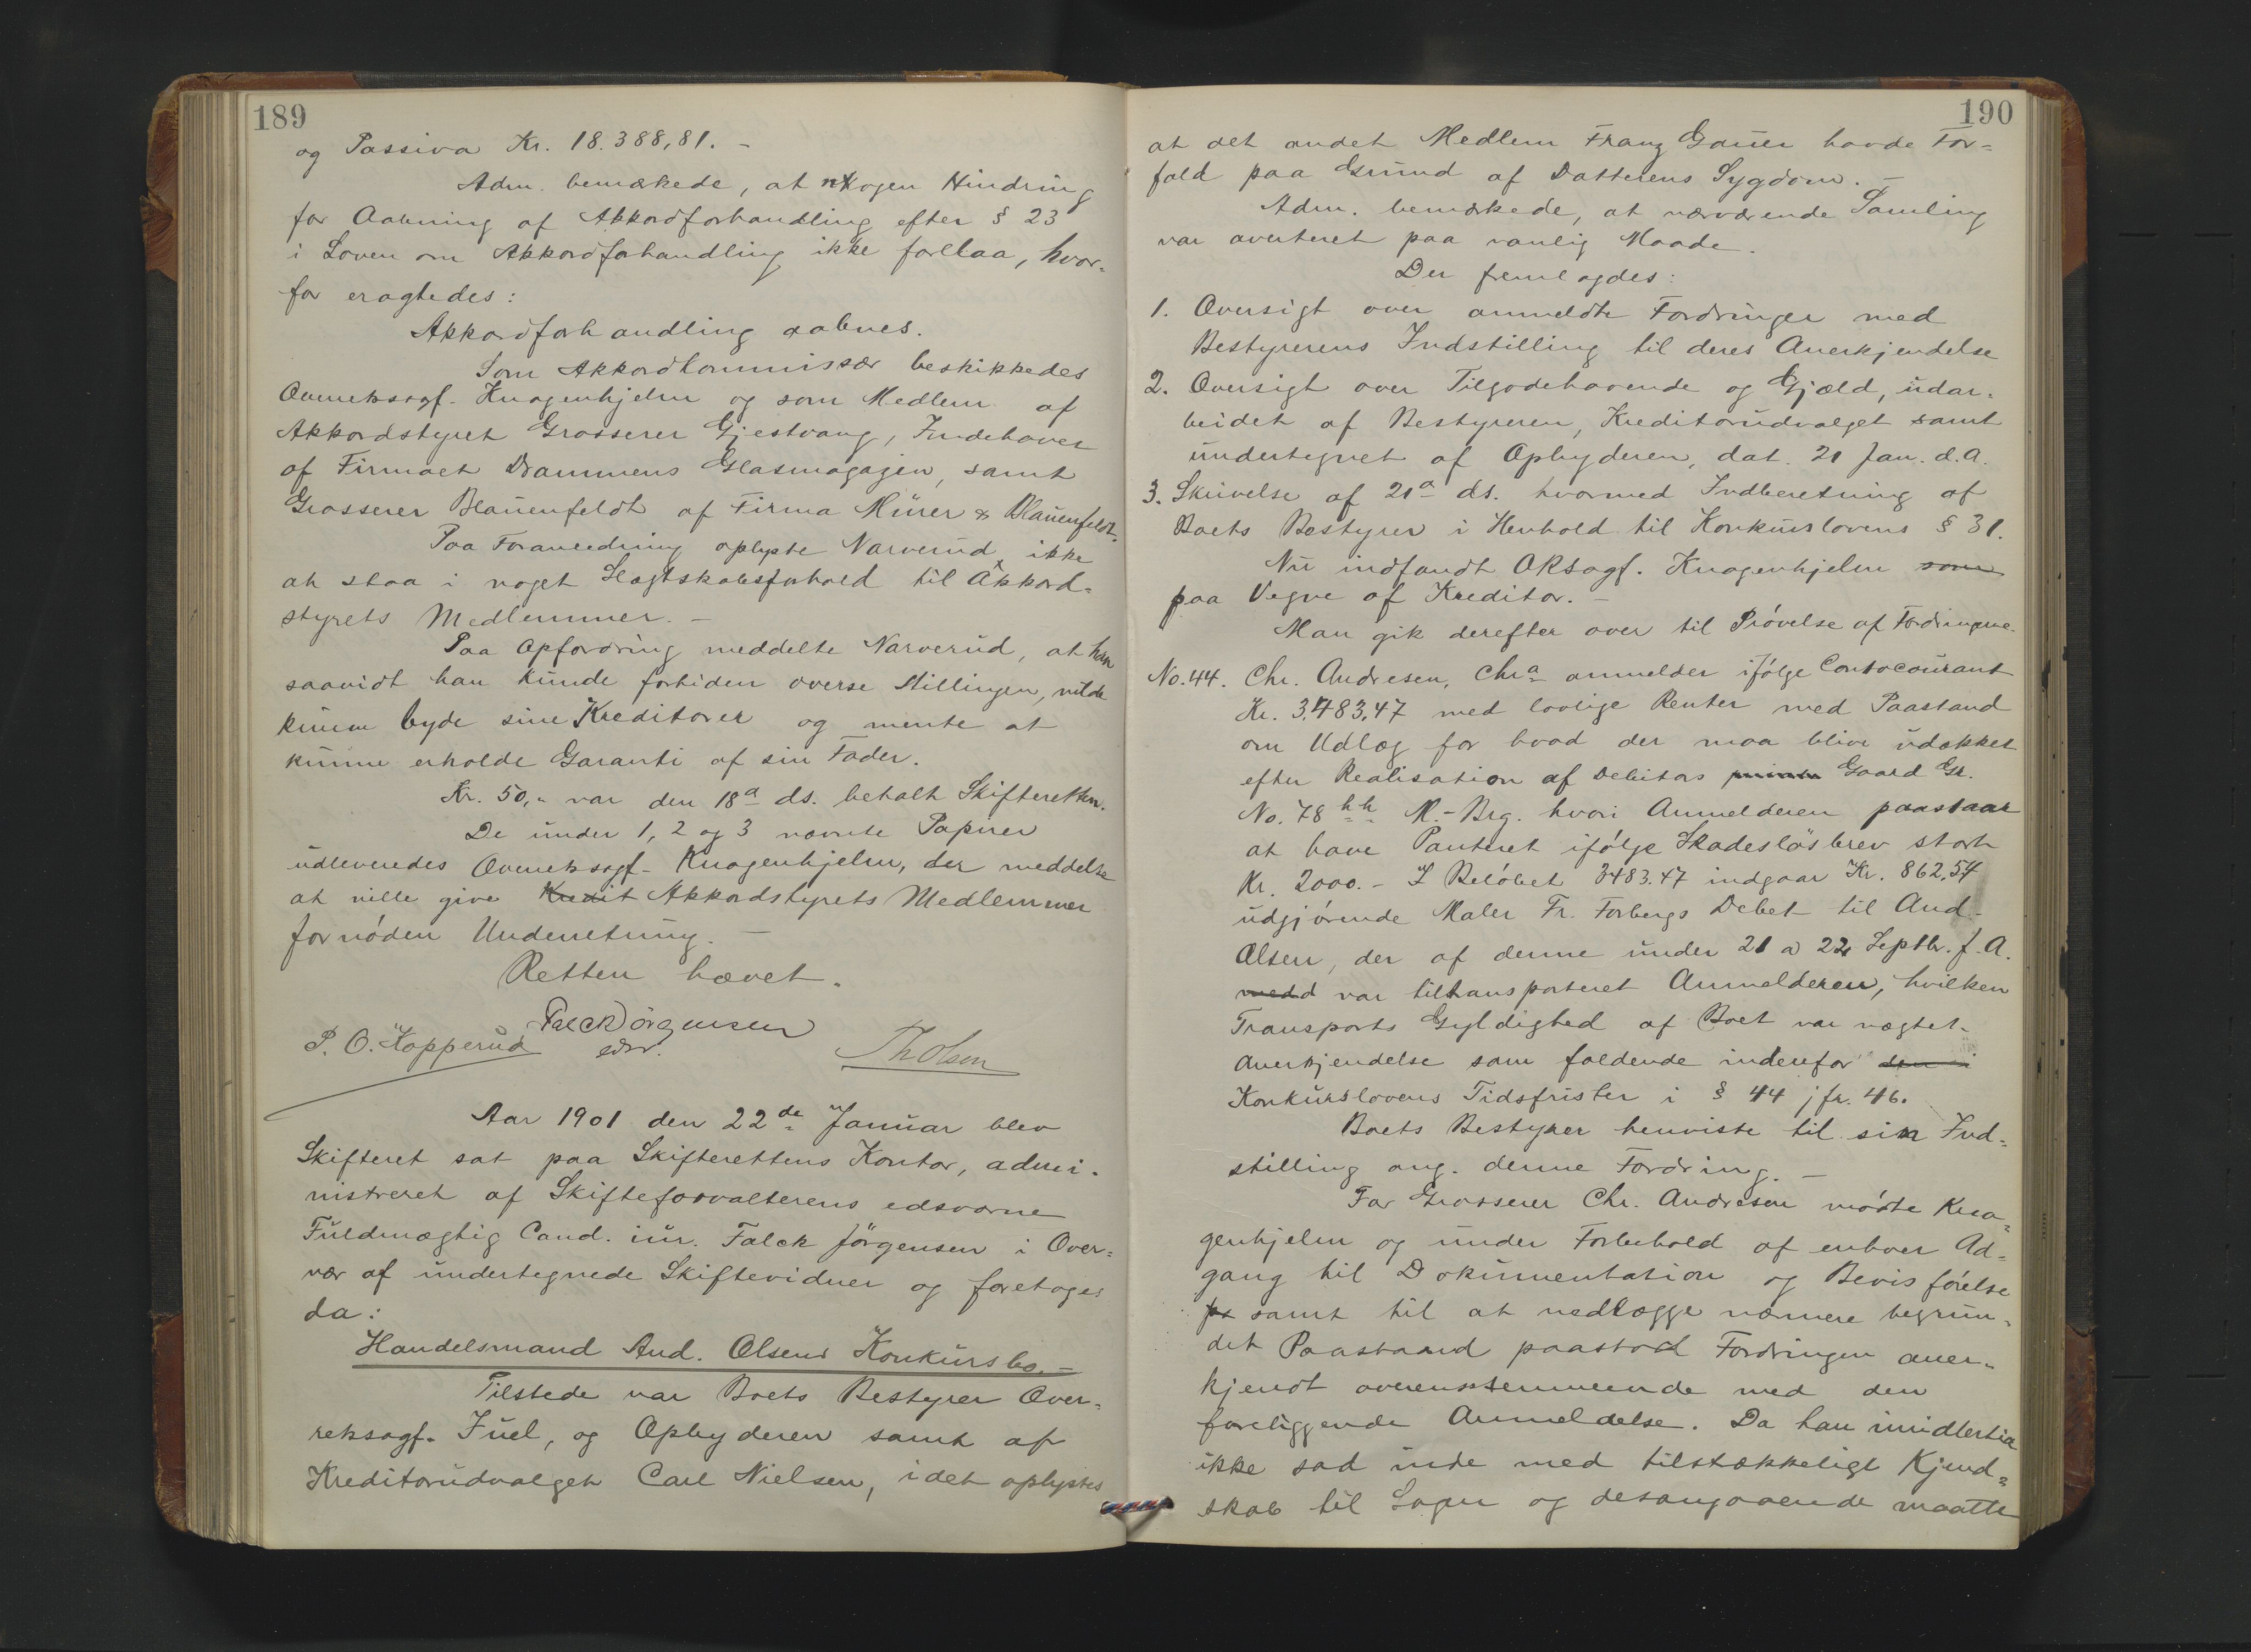 189
og Passiva Kr. 18.388,81. –
Adm. bemærkede, at nogen Hindring
for Aabning af Akkordforhandling efter § 23
i Loven om Akkordforhandling ikke forelaa, hvor-
for eragtedes:
Akkordforhandling aabnes.
Som Akkordkommissær beskikkedes
Overretssagf. Knagenhjelm og som Medlem af
Akkordstyret Grosserer Gjestvang, Indehaver
af Firmaet Drammens Glasmagazin, samt
Grosserer Blauenfeldt af Firma Mürer & Blauenfeldt.
Paa Foranledning oplyste Narverud ikke
at staa i noget Slægtskabsforhold til Akkord-
styrets Medlemmer. –
Paa Opfordring meddelte Narverud, at han
saavidt han kunde fortiden overse Stillingen, vilde
kunne byde sine Kreditorer og mente at
kunne erholde Garanti af sin Fader.
Kr. 50,- var den 18a ds. betalt Skifteretten.
De under 1, 2 og 3 nævnte Papirer
udleveredes Overretssagf. Knagenhjelm, der meddelte
at ville give Kredit Akkordstyrets Medlemmer
fornöden Underretning. –
Retten hævet.
Falck Jörgensen
edsv.
P. O. Kopperud
Th Olsen
Aar 1901 den 22de Januar blev
Skifteret sat paa Skifterettens Kontor, admi-
nistreret af Skifteforvalterens edsvorne
Fuldmægtig Cand. iur. Falck Jörgensen i Over-
vær af undertegnede Skiftevidner og foretoges
da:
Handelsmand And. Olsens Konkursbo. –
Tilstede var Boets Bestyrer Over-
retssagf. Juel, og Opbyderen samt af
Kreditorudvalget Carl Nielsen, idet oplystes
190
at det andet Medlem Franz Gauer havde For-
fald paa Grund af Datterens Sygdom. –
Adm. bemærkede, at nærværende Samling
var averteret paa vanlig Maade.
Der fremlagdes:
1. Oversigt over anmeldte Fordringer med
Bestyrerens Indstilling til deres Anerkjendelse
2. Oversigt over Tilgodehavende og Gjæld, udar-
beidet af Bestyreren, Kreditorudvalget samt
undertegnet af Opbyderen, dat. 21 Jan. d.A.
3. Skrivelse af 21a ds. hvormed Indberetning af
Boets Bestyrer i Henhold til Konkurslovens § 31.
Nu indfandt ORsagf. Knagenhjelm som
paa Vegne af Kreditor. –
Man gik derefter over til Prövelse af Fordringerne.
No. 44. Chr. Andresen, Chr a anmelder ifölge Contocourant
Kr. 3,483,47 med lovlige Renter med Paastand
om Udlæg for hvad der maa blive udækket
efter Realisation af Debitors Gaard Gr.
No. 78 hh M.-Brg. hvori Anmelderen paastaar
at have Panteret ifölge Skadeslösbrev stort
Kr. 2000.- I Belöbet 3483.47 indgaar Kr. 862,54
udgjörende Maler Fr. Forbergs Debet til And.
Olsen, der af denne under 21 a 22 Septbr. f. A.
var tiltransporteret Anmelderen, hvilken
Transports Gyldighed af Boet var nægtet
Anerkjendelse som faldende indenfor den i
Konkurslovens Tidsfrister i § 44 jfr. 46.
Boets Bestyrer henviste til sin Ind-
stilling ang. denne Fordring. –
For Grosserer Chr. Andresen mödte Kna-
genhjelm og under Forbehold af enhver Ad-
gang til Dokumentation og Bevisförelse
samt til at nedlægge nærmere begrun-
det Paastand paastod Fordringen aner-
kjendt overensstemmende med den
foreliggende Anmeldelse. Da han imidlertid
ikke sad inde med tilstrækkeligt Kjend-
skab til Sagen og desangaaende maatte